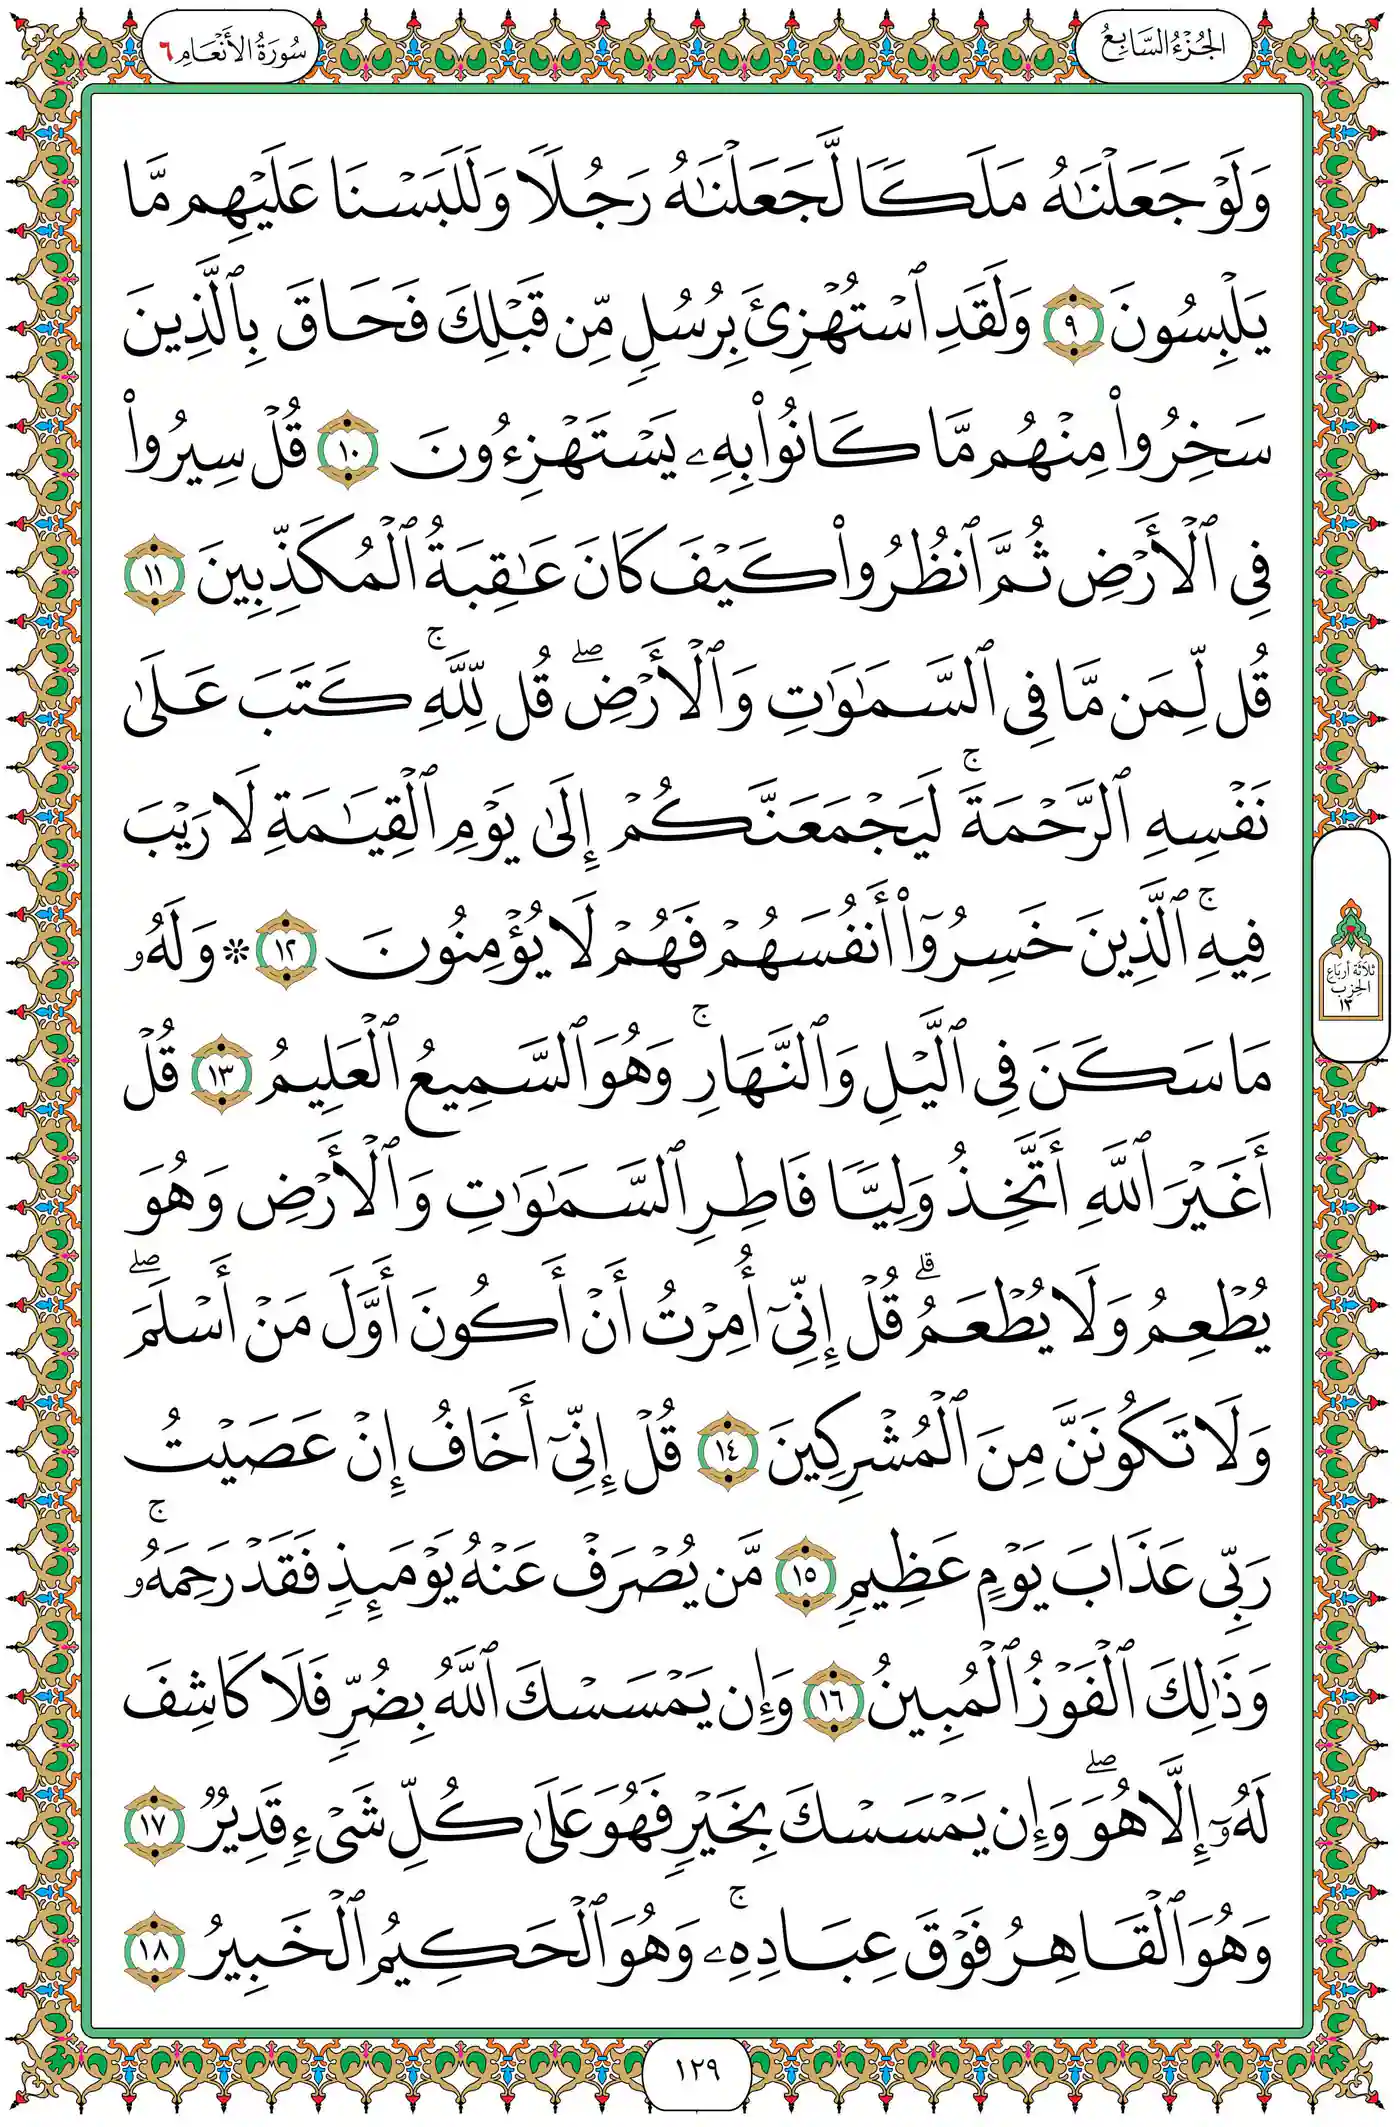 الجُزْءُ السَّابِعُ
سُورَةُ الأَنْعَامِ ٦
وَلَوۡ جَعَلۡنَٰهُ مَلَكٗا لَّجَعَلۡنَٰهُ رَجُلٗا وَلَلَبَسۡنَا عَلَيۡهِم مَّا
يَلۡبِسُونَ ٩ وَلَقَدِ ٱسۡتُهۡزِئَ بِرُسُلٖ مِّن قَبۡلِكَ فَحَاقَ بِٱلَّذِينَ
سَخِرُواْ مِنۡهُم مَّا كَانُواْ بِهِۦ يَسۡتَهۡزِءُونَ ١٠ قُلۡ سِيرُواْ
فِي ٱلۡأَرۡضِ ثُمَّ ٱنظُرُواْ كَيۡفَ كَانَ عَٰقِبَةُ ٱلۡمُكَذِّبِينَ ١١
قُل لِّمَن مَّا فِي ٱلسَّمَٰوَٰتِ وَٱلۡأَرۡضِۖ قُل لِّلَّهِۚ كَتَبَ عَلَىٰ
نَفۡسِهِ ٱلرَّحۡمَةَۚ لَيَجۡمَعَنَّكُمۡ إِلَىٰ يَوۡمِ ٱلۡقِيَٰمَةِ لَا رَيۡبَ
فِيهِۚ ٱلَّذِينَ خَسِرُوٓاْ أَنفُسَهُمۡ فَهُمۡ لَا يُؤۡمِنُونَ ١٢ ۞ وَلَهُۥ
مَا سَكَنَ فِي ٱلَّيۡلِ وَٱلنَّهَارِۚ وَهُوَ ٱلسَّمِيعُ ٱلۡعَلِيمُ ١٣ قُلۡ
أَغَيۡرَ ٱللَّهِ أَتَّخِذُ وَلِيّٗا فَاطِرِ ٱلسَّمَٰوَٰتِ وَٱلۡأَرۡضِ وَهُوَ
يُطۡعِمُ وَلَا يُطۡعَمُۗ قُلۡ إِنِّيٓ أُمِرۡتُ أَنۡ أَكُونَ أَوَّلَ مَنۡ أَسۡلَمَۖ
وَلَا تَكُونَنَّ مِنَ ٱلۡمُشۡرِكِينَ ١٤ قُلۡ إِنِّيٓ أَخَافُ إِنۡ عَصَيۡتُ
رَبِّي عَذَابَ يَوۡمٍ عَظِيمٖ ١٥ مَّن يُصۡرَفۡ عَنۡهُ يَوۡمَئِذٖ فَقَدۡ رَحِمَهُۥۚ
وَذَٰلِكَ ٱلۡفَوۡزُ ٱلۡمُبِينُ ١٦ وَإِن يَمۡسَسۡكَ ٱللَّهُ بِضُرّٖ فَلَا كَاشِفَ
لَهُۥٓ إِلَّا هُوَۖ وَإِن يَمۡسَسۡكَ بِخَيۡرٖ فَهُوَ عَلَىٰ كُلِّ شَيۡءٖ قَدِيرٞ ١٧
وَهُوَ ٱلۡقَاهِرُ فَوۡقَ عِبَادِهِۦۚ وَهُوَ ٱلۡحَكِيمُ ٱلۡخَبِيرُ ١٨
ثلاثة أرباع
الحزب
١٣
١٢٩